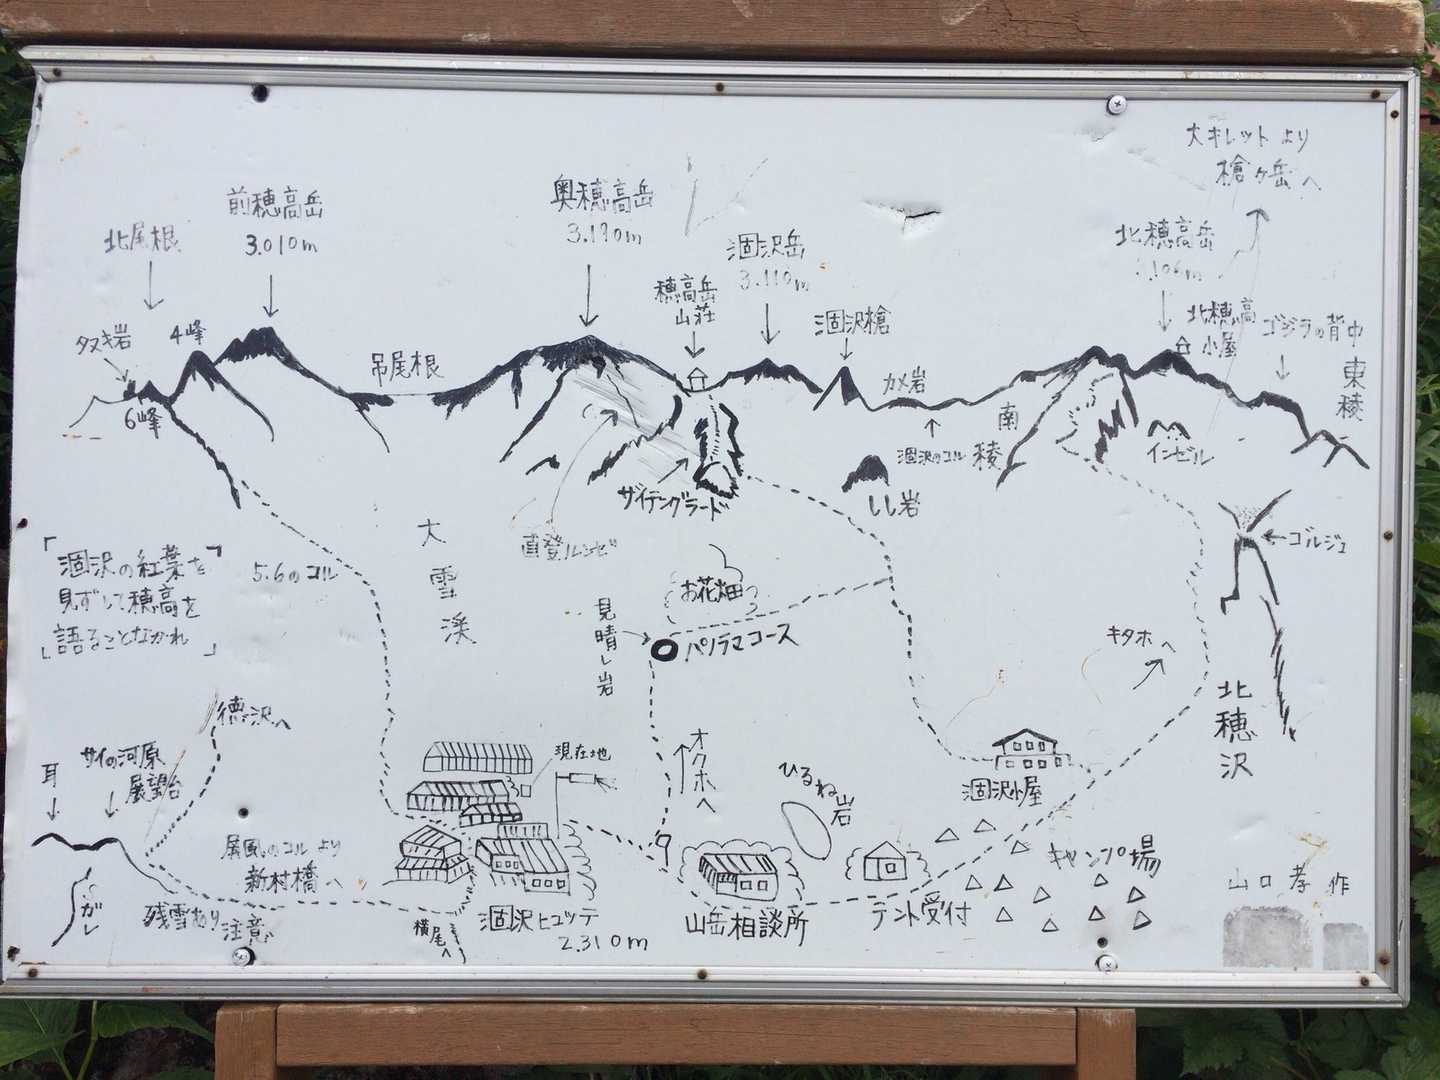 大キレットより
槍ヶ岳へ
前穂高岳
3.010m
奥穂高岳
3.190m
北尾根
涸沢岳
3.110m
北穂高岳
106m
穂高岳
山荘
涸沢槍
北穂高
小屋
ゴジラの背中
東稜
タヌキ岩
4峰
6峰
吊尾根
カメ岩
涸沢のコル
南稜
インゼル
ザイテングラード
しし岩
直登ルンゼ
ゴルジュ
大雪渓
「涸沢の紅葉を
見ずして穂高を
語ることなかれ」
5.6のコル
お花畑
見晴し岩
パノラマコース
キタホへ
北穂沢
徳沢へ
耳
サイの河原
展望台
現在地
オクホへ
ひるね岩
涸沢小屋
屏風のコルより
新村橋へ
キャンプ場
ガレ
残雪あり
注意
横尾へ
涸沢ヒュッテ
2.310m
山岳相談所
テント受付
山口孝作